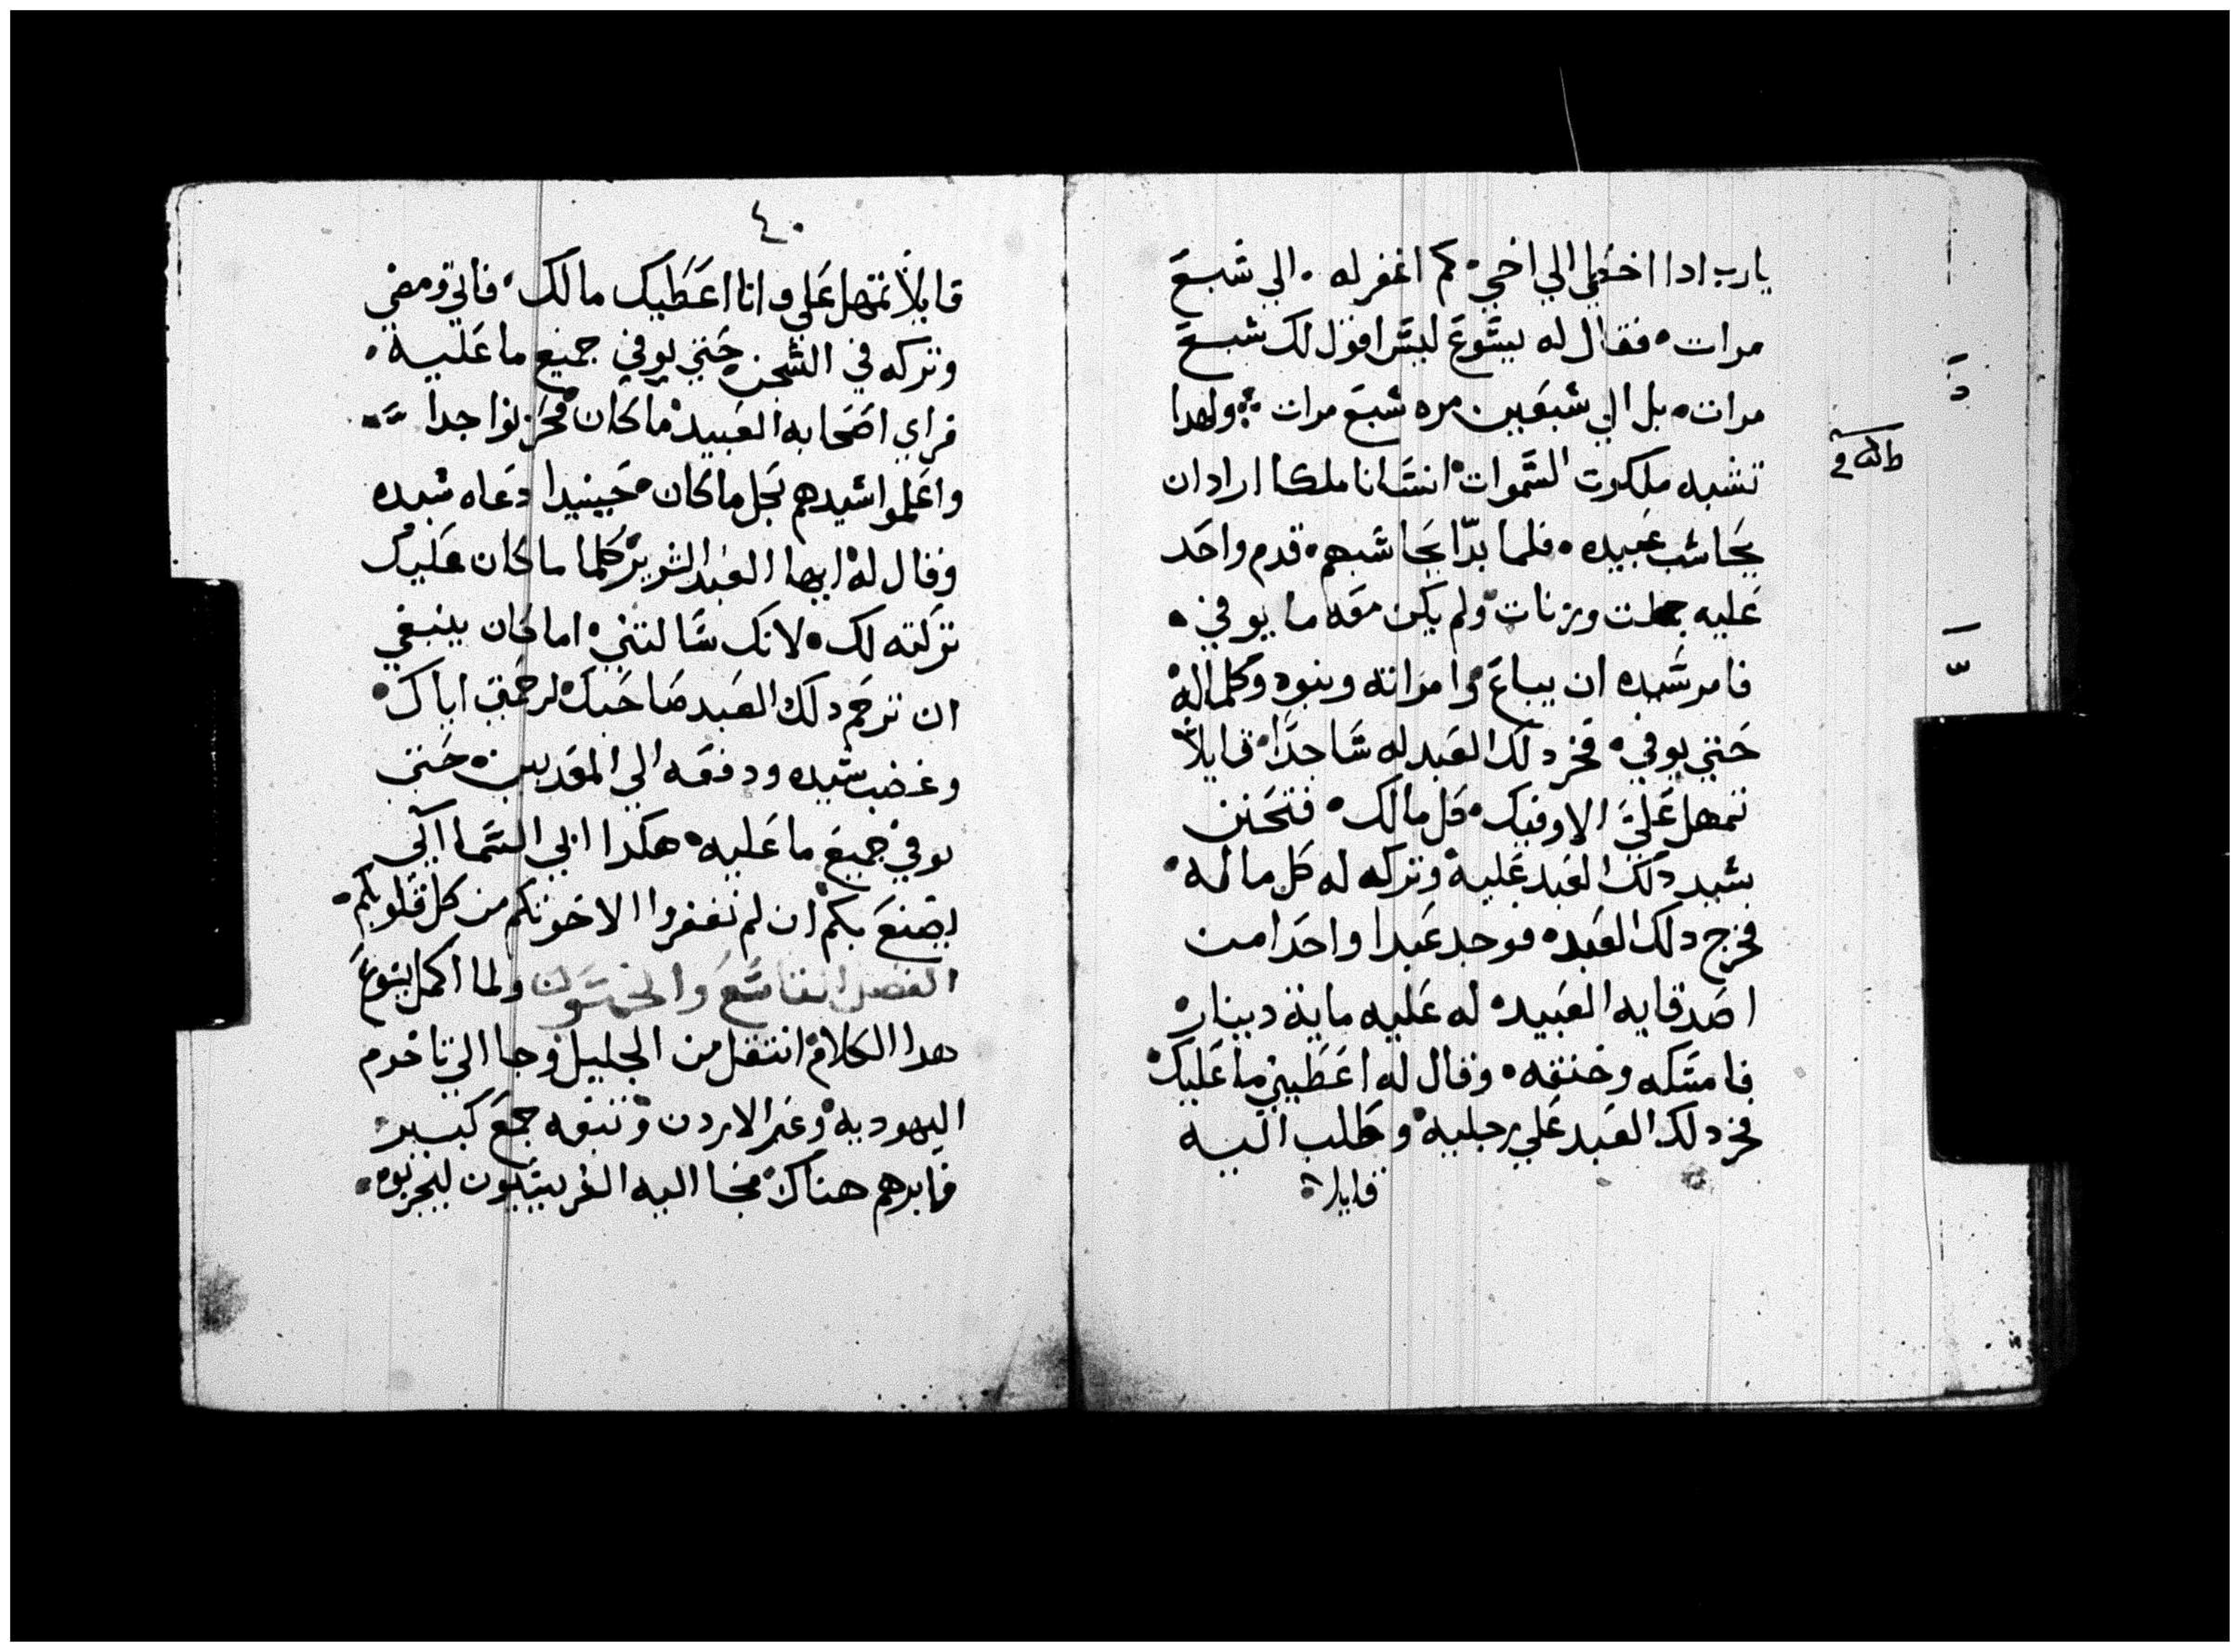 يارب ادا اخطي الي اخي كم اغفر له الي شبع
مرات فقال له يسَوع ليسَ اقول لك شبع
مرات بل الي شبعين مره شبع مرات ولهدا
تشبه ملكوت السَّموات انسَانا ملكا اراد ان
يحَاشب عبيده فلما بدّا يحَاشبهم قدم واحَد
عَليه جملت وزنات ولم يكن معَه ما يوفي
فامر شَيده ان يباعَ وامراته وبنوه وكلما له
حَتي يوفي فخر دلك العَبد له سَاجدًا قايلاً
تمهل عَليَّ الاوفيك كل مالك فتحَنن
شيد دلك العَبد عَليه وتركه له كل ماله
فخرج دلك العَبد فوجد عَبدا واحَدا من
اصَدقايه العَبيد له عَليه ماية دينار
فامسَكه وخنقه وقال له اعَطيني ما عَليك
فخر دلك العَبد عَلي رجليه وطلب اليه
قايلا
٤٠
قايلاً تمهل عَلي وانا اعَطيك مالك فابي ومضي
وتركه في الشَجن حَتي يوفي جميع ما عَليه
فراي اصَحابه العَبيد ما كان فحَزنوا جدا
واعَلموا شيدهم بَجل ما كان حَينيدا دعَاه شيده
وقال له ايها العَبد الشرير كلما ما كان عَليك
تركته لك لانك سَالتني اما كان ينبغي
ان ترحَم دلك العَبد صَاحَبك لرحَمتي اياك
وغضب شيده ودفعَه الي المعَدبين حَتي
يوفي جميعَ ما عَليه هكدا ابي السَّماايي
يصَنعَ بكم ان لم تغفروا الاخوتكم من كل قلوبكم
الفصل التاسَعَ والخمسَون ولما اكمل يسَوعَ
هدا الكلام انتقل من الجليل وجا الي تاخوم
اليهوديه وعَبر الاردن وتبعَه جمعَ كبير
فابرهم هناك فجا اليه الفريسَيون ليجربوه